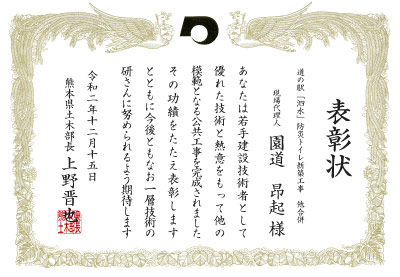 表彰状
道の駅「泗水」防災トイレ新築工事 他合併
現場代理人 園道 昂起 様
あなたは若手建設技術者として
優れた技術と熱意をもって他の
模範となる公共工事を完成されました
その功績をたたえ表彰します
とともに今後ともなお一層技術の
研さんに努められるよう期待します
令和二年十二月十五日
熊本県土木部長 上野晋也